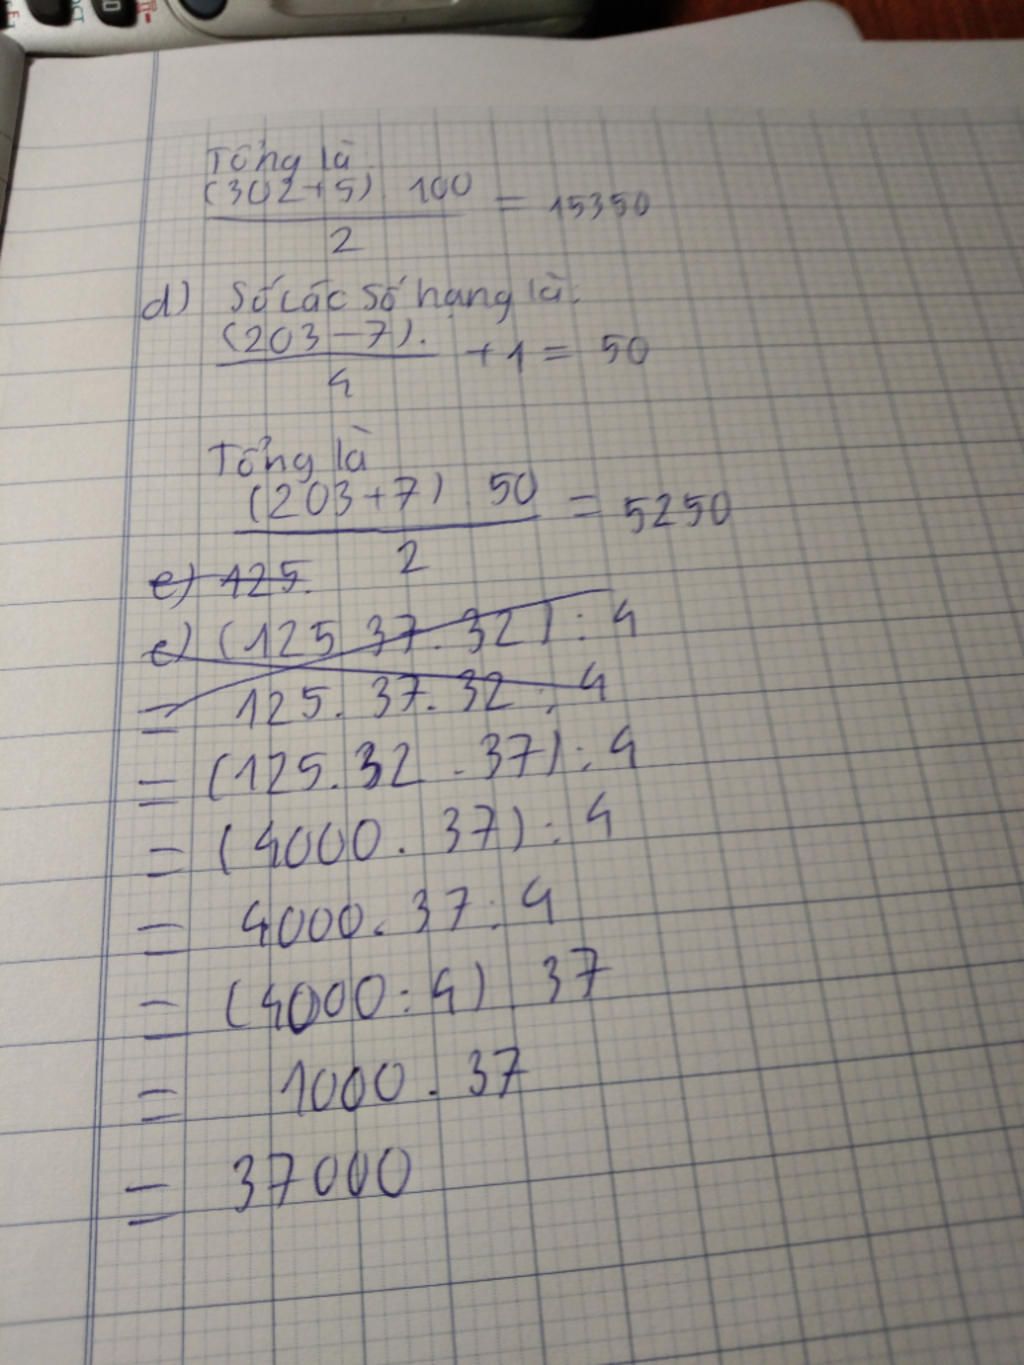 Tổng là
(302+5) 100
2
= 15350
d) Số các số hạng là.
(203-7).
4
+1= 50
Tổng là
(203+7) 50
2
= 5250
e) 125.
e) (125 37. 32) : 4
= 125. 37. 32 : 4
= (125. 32 . 37) : 4
= (4000. 37) : 4
= 4000. 37 : 4
= (4000 : 4) . 37
= 1000 . 37
= 37000